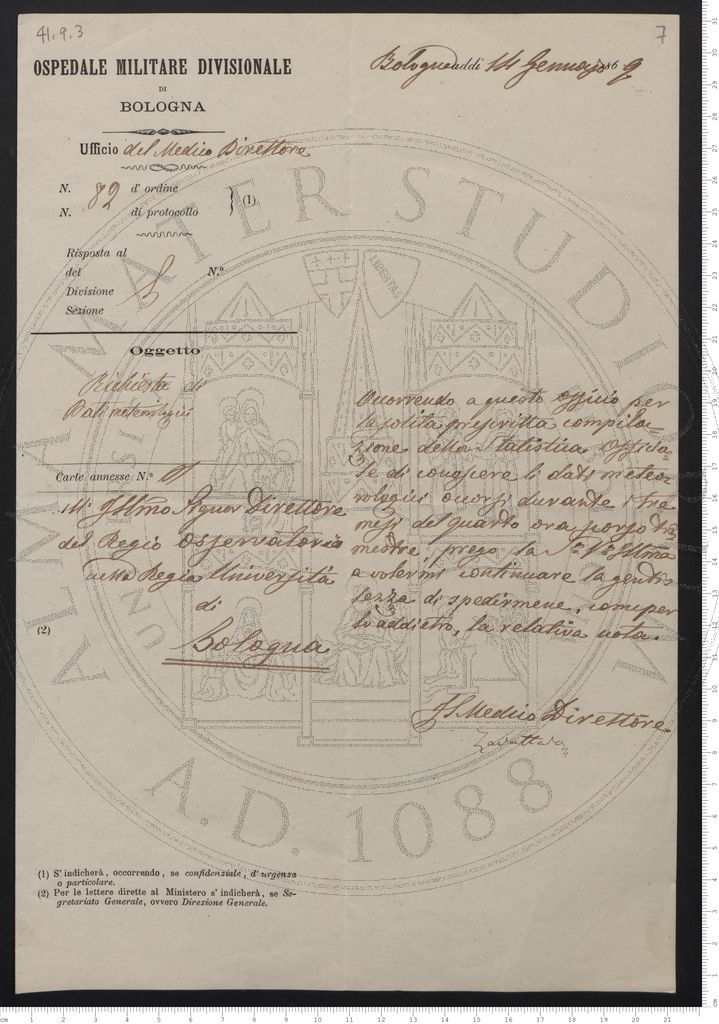 41.9.3
7
OSPEDALE MILITARE DIVISIONALE
DI
BOLOGNA
Bologna addì 14 Gennajo 1869
Ufficio del Medico Direttore
N. 82 d' ordine
N. di protocollo
(1)
Risposta al
del
Divisione N.°
Sezione
Oggetto
Richiesta di
Dati meteorologici
Carte annesse N.°
All' Illmo Signor Direttore
del Regio Osservatorio
della Regia Università
di
(2)
Bologna
Occorrendo a questo Officio per
la solita prescritta compila-
zione della Statistica Officia-
le di conoscere li dati meteo-
rologici occorsi durante i tre
mesi del quarto ora scorso tri-
mestre, prego la S.a V.a Illma
a volermi continuare la genti-
lezza di spedirmene, come per
lo addietro, la relativa nota.
Il Medico Direttore
(1) S' indicherà, occorrendo, se confidenziale, d' urgenza
o particolare.
(2) Per le lettere dirette al Ministero s' indicherà, se Se-
gretariato Generale, ovvero Direzione Generale.
ALMA MATER STUDIORUM
A.D. 1088
LIBERTAS